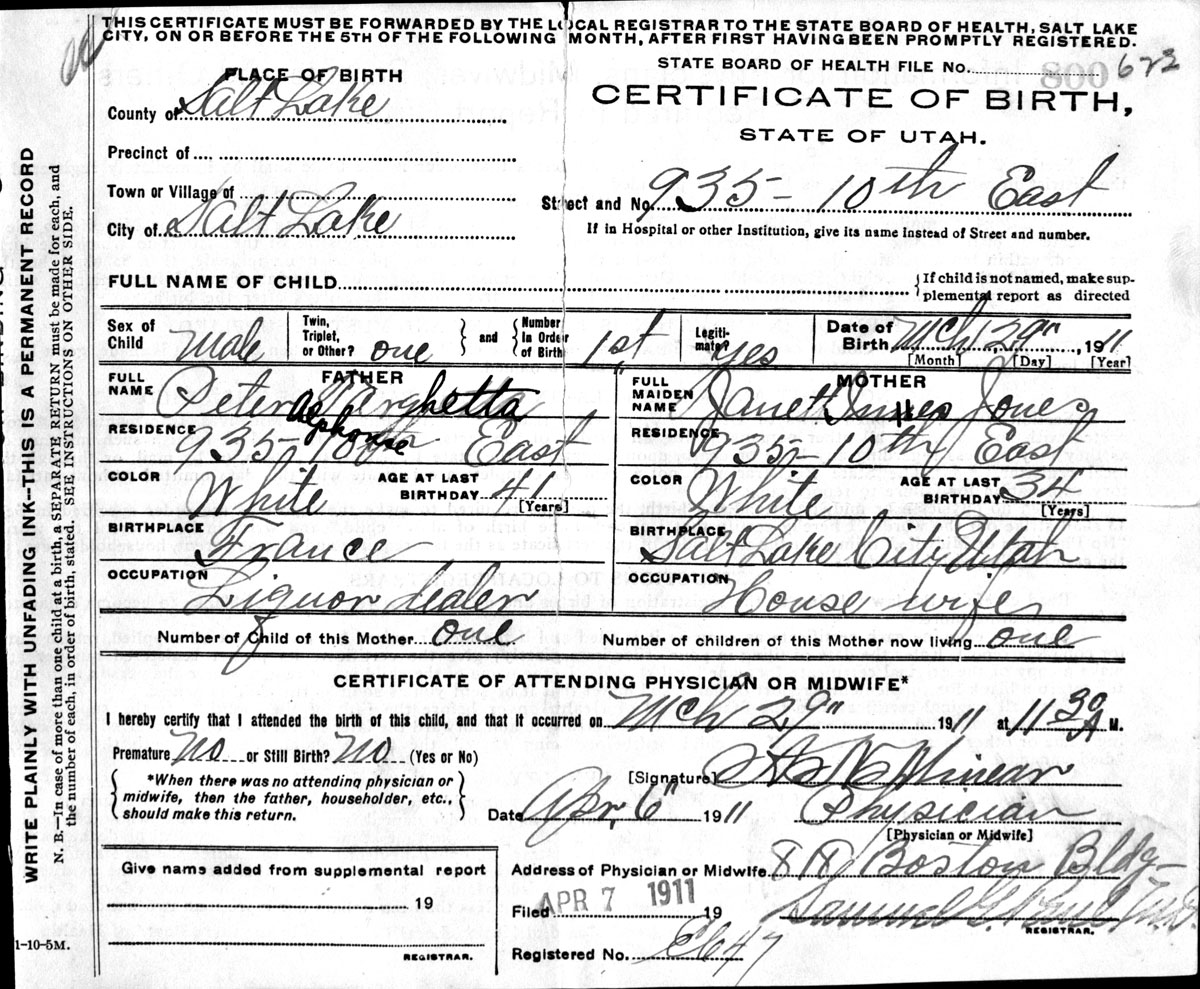 THIS CERTIFICATE MUST BE FORWARDED BY THE LOCAL REGISTRAR TO THE STATE BOARD OF HEALTH, SALT LAKE
CITY, ON OR BEFORE THE 5TH OF THE FOLLOWING MONTH, AFTER FIRST HAVING BEEN PROMPTLY REGISTERED.
STATE BOARD OF HEALTH FILE No. 672
PLACE OF BIRTH
CERTIFICATE OF BIRTH,
STATE OF UTAH.
County of Salt Lake
Precinct of
Town or Village of
City of Salt Lake
Street and No. 935 - 10th East
If in Hospital or other Institution, give its name instead of Street and number.
FULL NAME OF CHILD
If child is not named, make sup-
plemental report as directed
Sex of Child Male
Twin, Triplet, or Other? one
and
Number In Order of Birth 1st
Legiti-mate? Yes
Date of Birth Mch 29", 1911
[Month] [Day] [Year]
FATHER
FULL NAME Peter Alphonse
MOTHER
FULL MAIDEN NAME Janett Innes Jones
RESIDENCE 935 - 10th East
RESIDENCE 935 - 10th East
COLOR White AGE AT LAST BIRTHDAY 41 [Years]
COLOR White AGE AT LAST BIRTHDAY 34 [Years]
BIRTHPLACE France
BIRTHPLACE Salt Lake City Utah
OCCUPATION Liquor dealer
OCCUPATION House wife
Number of Child of this Mother one
Number of children of this Mother now living one
CERTIFICATE OF ATTENDING PHYSICIAN OR MIDWIFE*
I hereby certify that I attended the birth of this child, and that it occurred on Mch 29" 1911 at 11 30 A M.
Premature No or Still Birth? No (Yes or No)
*When there was no attending physician or
midwife, then the father, householder, etc.,
should make this return.
[Signature]
Date Apr. 6" 1911 Physician
[Physician or Midwife]
Give name added from supplemental report
19
REGISTRAR.
Address of Physician or Midwife 818 Boston Bldg
Filed APR 7 1911 19
REGISTRAR.
Registered No. E647
1-10-5M.
WRITE PLAINLY WITH UNFADING INK—THIS IS A PERMANENT RECORD
N. B.—In case of more than one child at a birth, SEPARATE RETURN must be made for each, and
the number of each, in order of birth, stated. SEE INSTRUCTIONS ON OTHER SIDE.